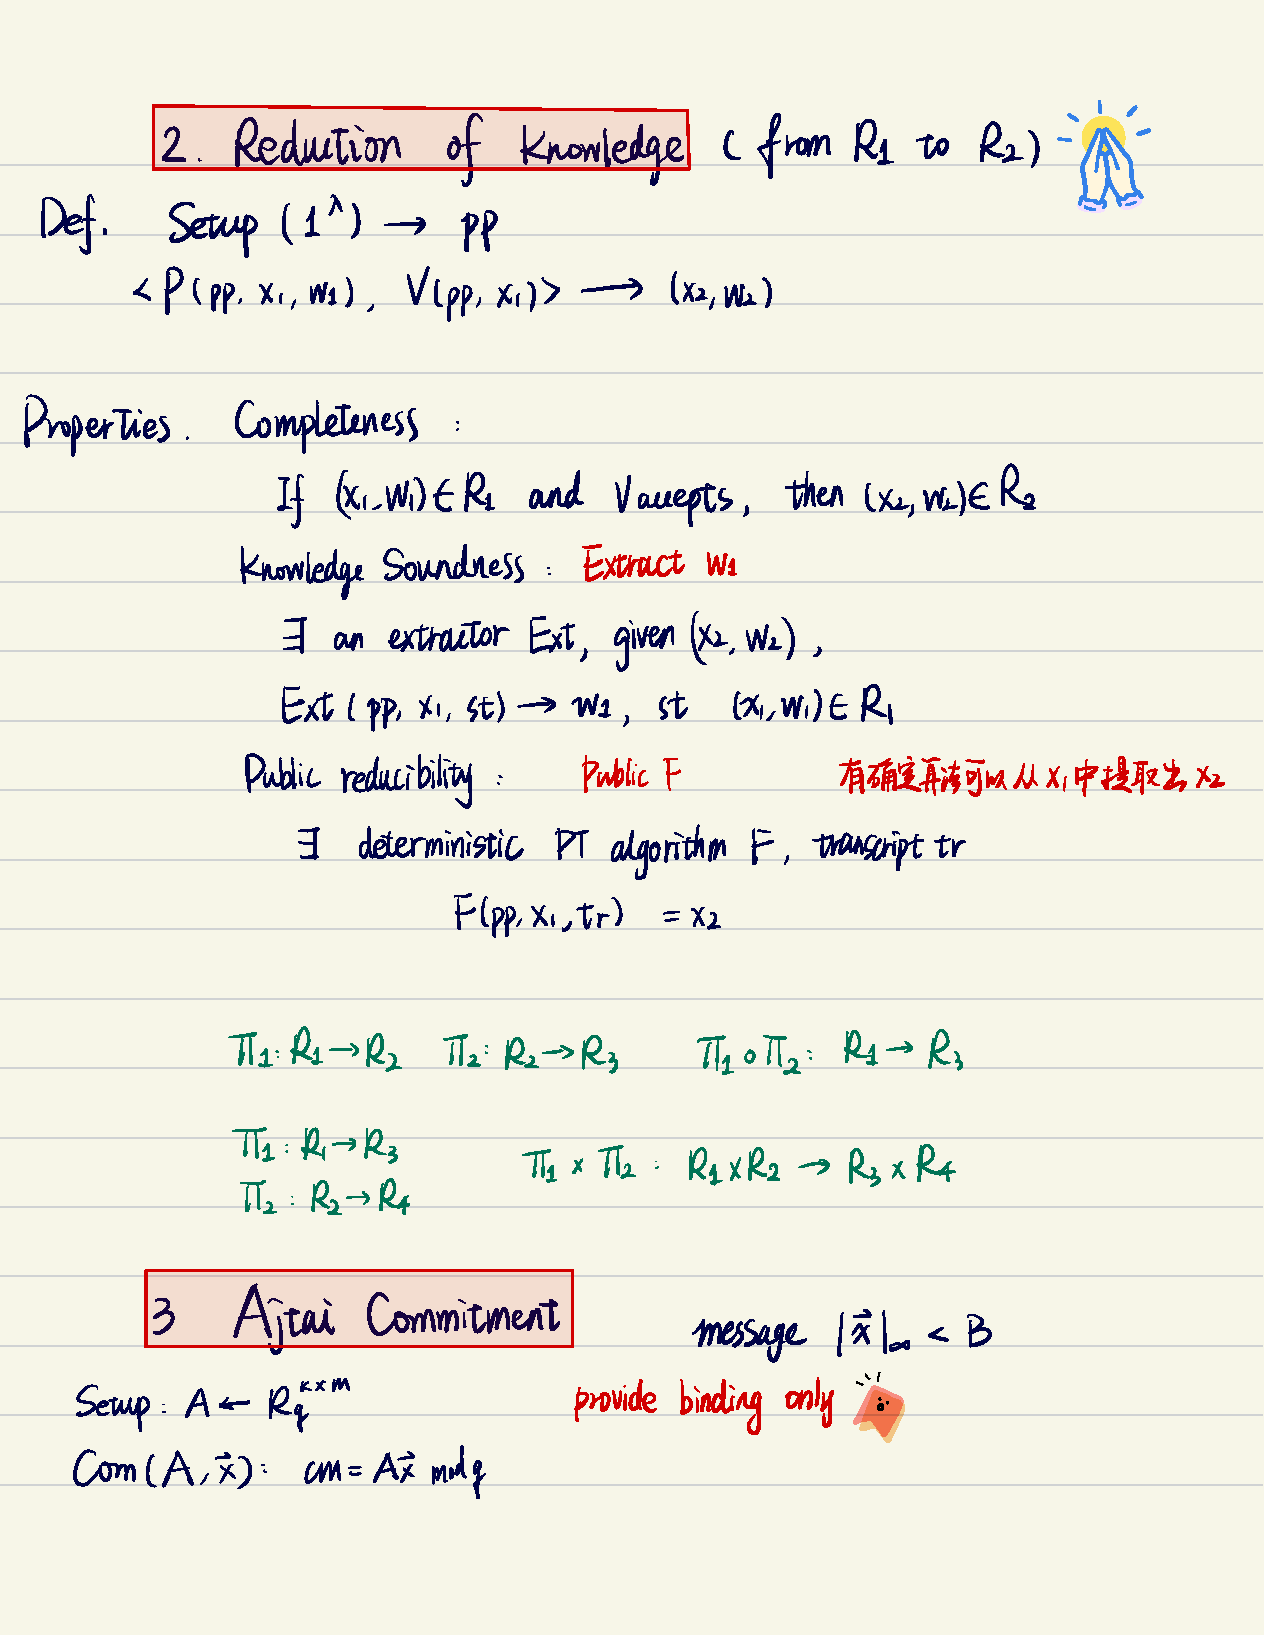 2. Reduction of Knowledge ( from R₁ to R₂ )
Def. Setup (1^λ) → pp
<P(pp, x₁, w₁), V(pp, x₁)> → (x₂, w₂)
Properties. Completeness :
If (x₁, w₁) ∈ R₁ and V accepts, then (x₂, w₂) ∈ R₂
Knowledge Soundness : Extract w₁
∃ an extractor Ext, given (x₂, w₂),
Ext (pp, x₁, st) → w₁, st (x₁, w₁) ∈ R₁
Public reducibility : Public F 有确定算法可以从 x₁ 中提取出 x₂
∃ deterministic PT algorithm F, transcript tr
F(pp, x₁, tr) = x₂
Π₁: R₁ → R₂ Π₂: R₂ → R₃ Π₁ ∘ Π₂: R₁ → R₃
Π₁ : R₁ → R₃
Π₁ × Π₂ : R₁ × R₂ → R₃ × R₄
Π₂ : R₂ → R₄
3 Ajtai Commitment
message |x⃗|∞ < B
Setup: A ← R_q^{κ×m} provide binding only
Com (A, x⃗): cm = Ax⃗ mod q